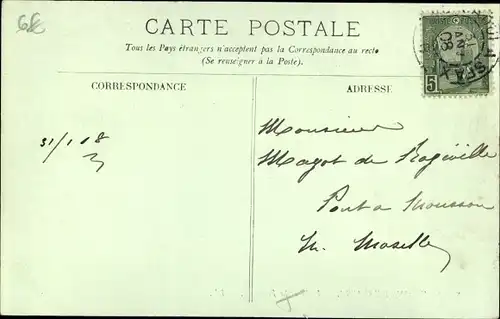 68
CARTE POSTALE
Tous les Pays étrangers n'acceptent pas la Correspondance au recto
(Se renseigner à la Poste).
CORRESPONDANCE
ADRESSE
5
SFAX
08
31/1 08
Monsieur
Magot de Rogéville
Pont a Mousson
M. Moselle